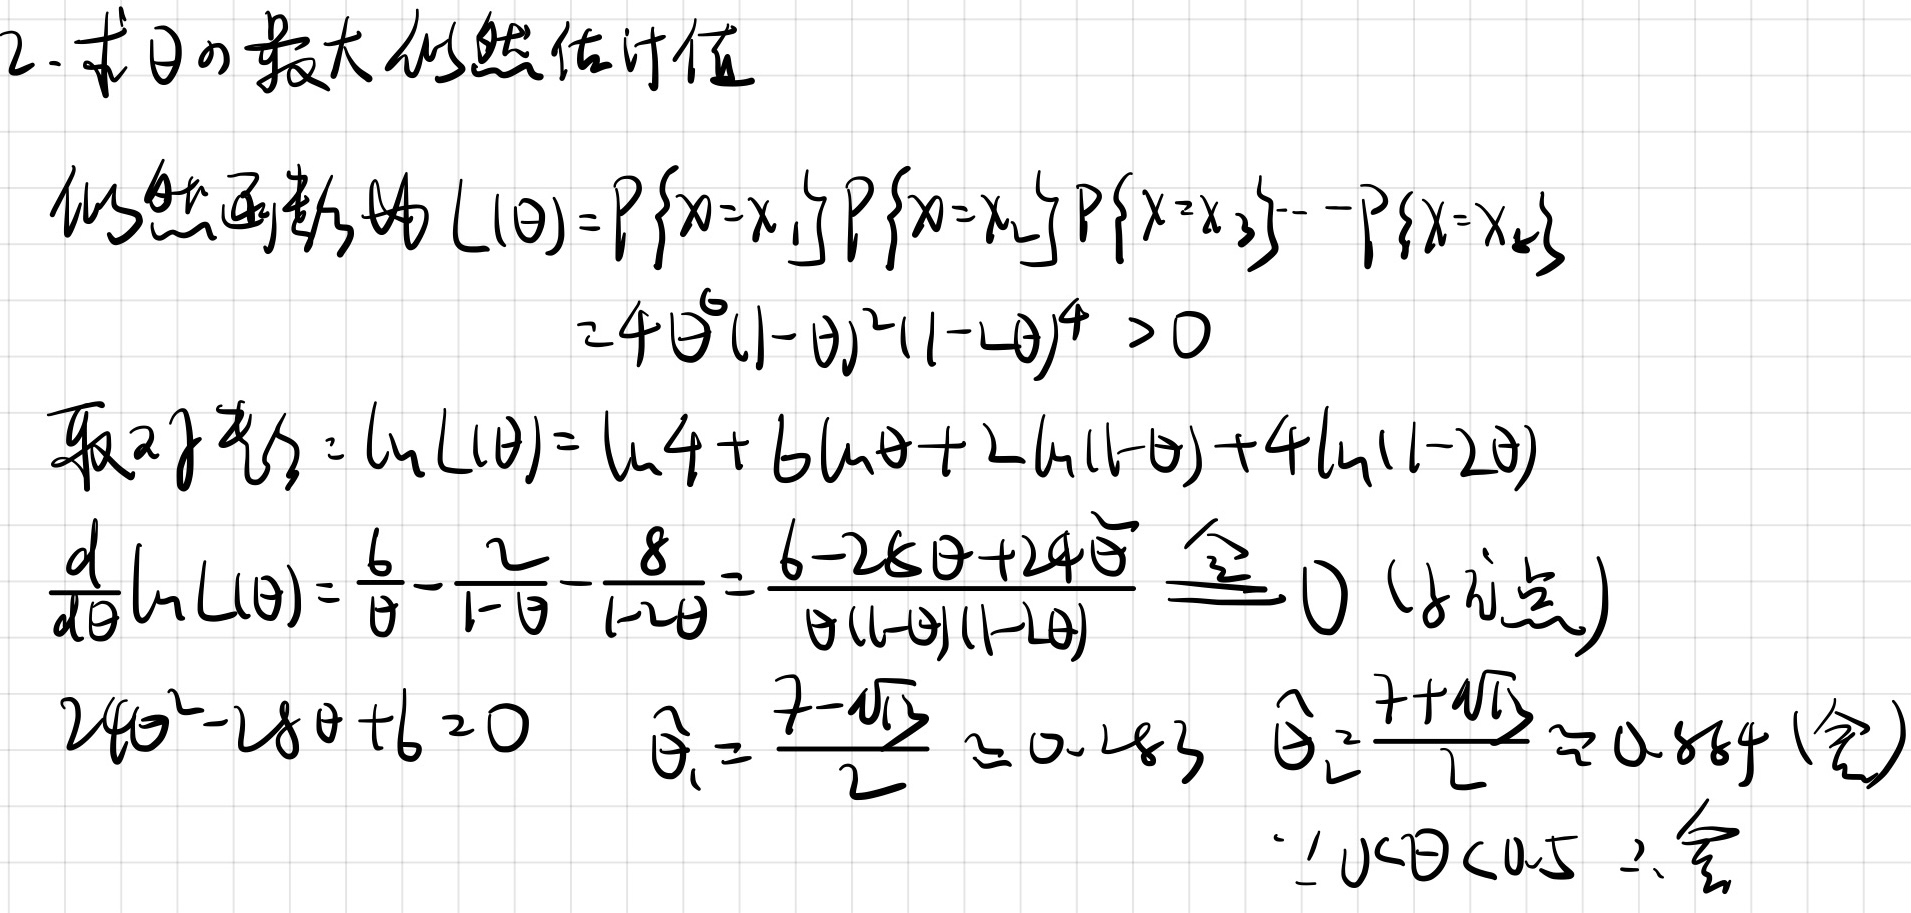 2.求θの最大似然估计值
似然函数为L(θ)=P{X=x₁}P{X=x₂}P{X=x₃}---P{X=x₈}
=4θ⁶(1-θ)²(1-2θ)⁴ >0
取对数:lnL(θ)=ln4+6lnθ+2ln(1-θ)+4ln(1-2θ)
d/dθ lnL(θ)=6/θ-2/(1-θ)-8/(1-2θ)=(6-28θ+24θ²)/(θ(1-θ)(1-2θ)) 令 0 (驻点)
24θ²-28θ+6=0 θ̂₁=(7-√13)/2≈0.283 θ̂₂=(7+√13)/2≈0.884(舍)
∵0<θ<0.5 ∴舍